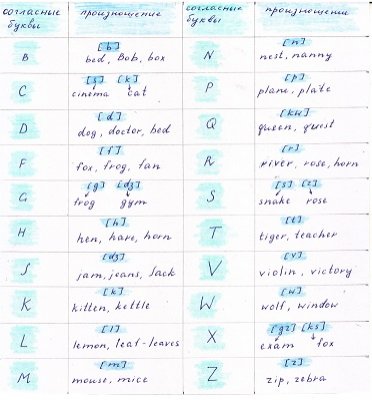 согласные буквы произношение согласные буквы произношении
B [b] bed, Bob, box N [n] nest, nanny
C [s] [k] cinema cat P [p] plane, plate
D [d] dog, doctor, bed Q [kw] queen, quest
F [f] fox, frog, fan R [r] river, rose, horn
G [g] [dʒ] frog gym S [s] [z] snake rose
H [h] hen, hare, horn T [t] tiger, teacher
J [dʒ] jam, jeans, Jack V [v] violin, victory
K [k] kitten, kettle W [w] wolf, window
L [l] lemon, leaf-leaves X [gz] [ks] exam fox
M [m] mouse, mice Z [z] zip, zebra